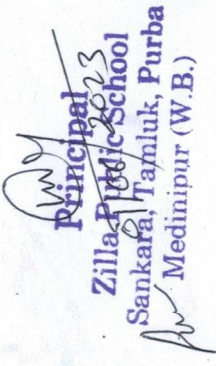 Principal
Zilla Public School
Sankara, Tamluk, Purba
Medinipur (W.B.)